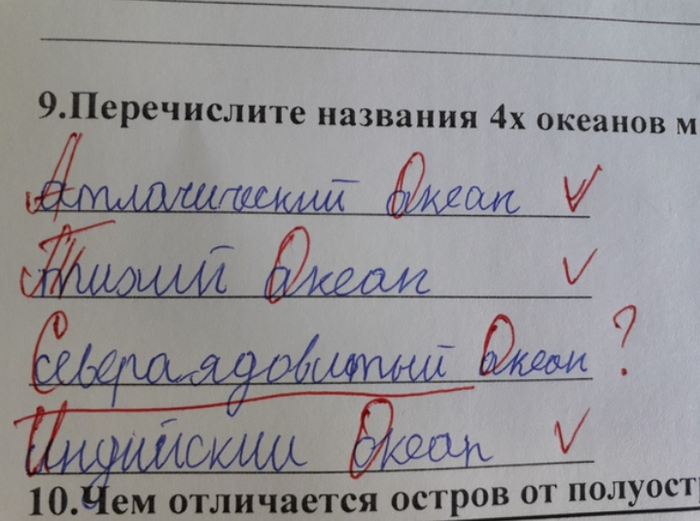 9.Перечислите названия 4х океанов м
Атлачический Океан
Тихий Океан
Североядовитый Океан ?
Индийский Океан
10.Чем отличается остров от полуост